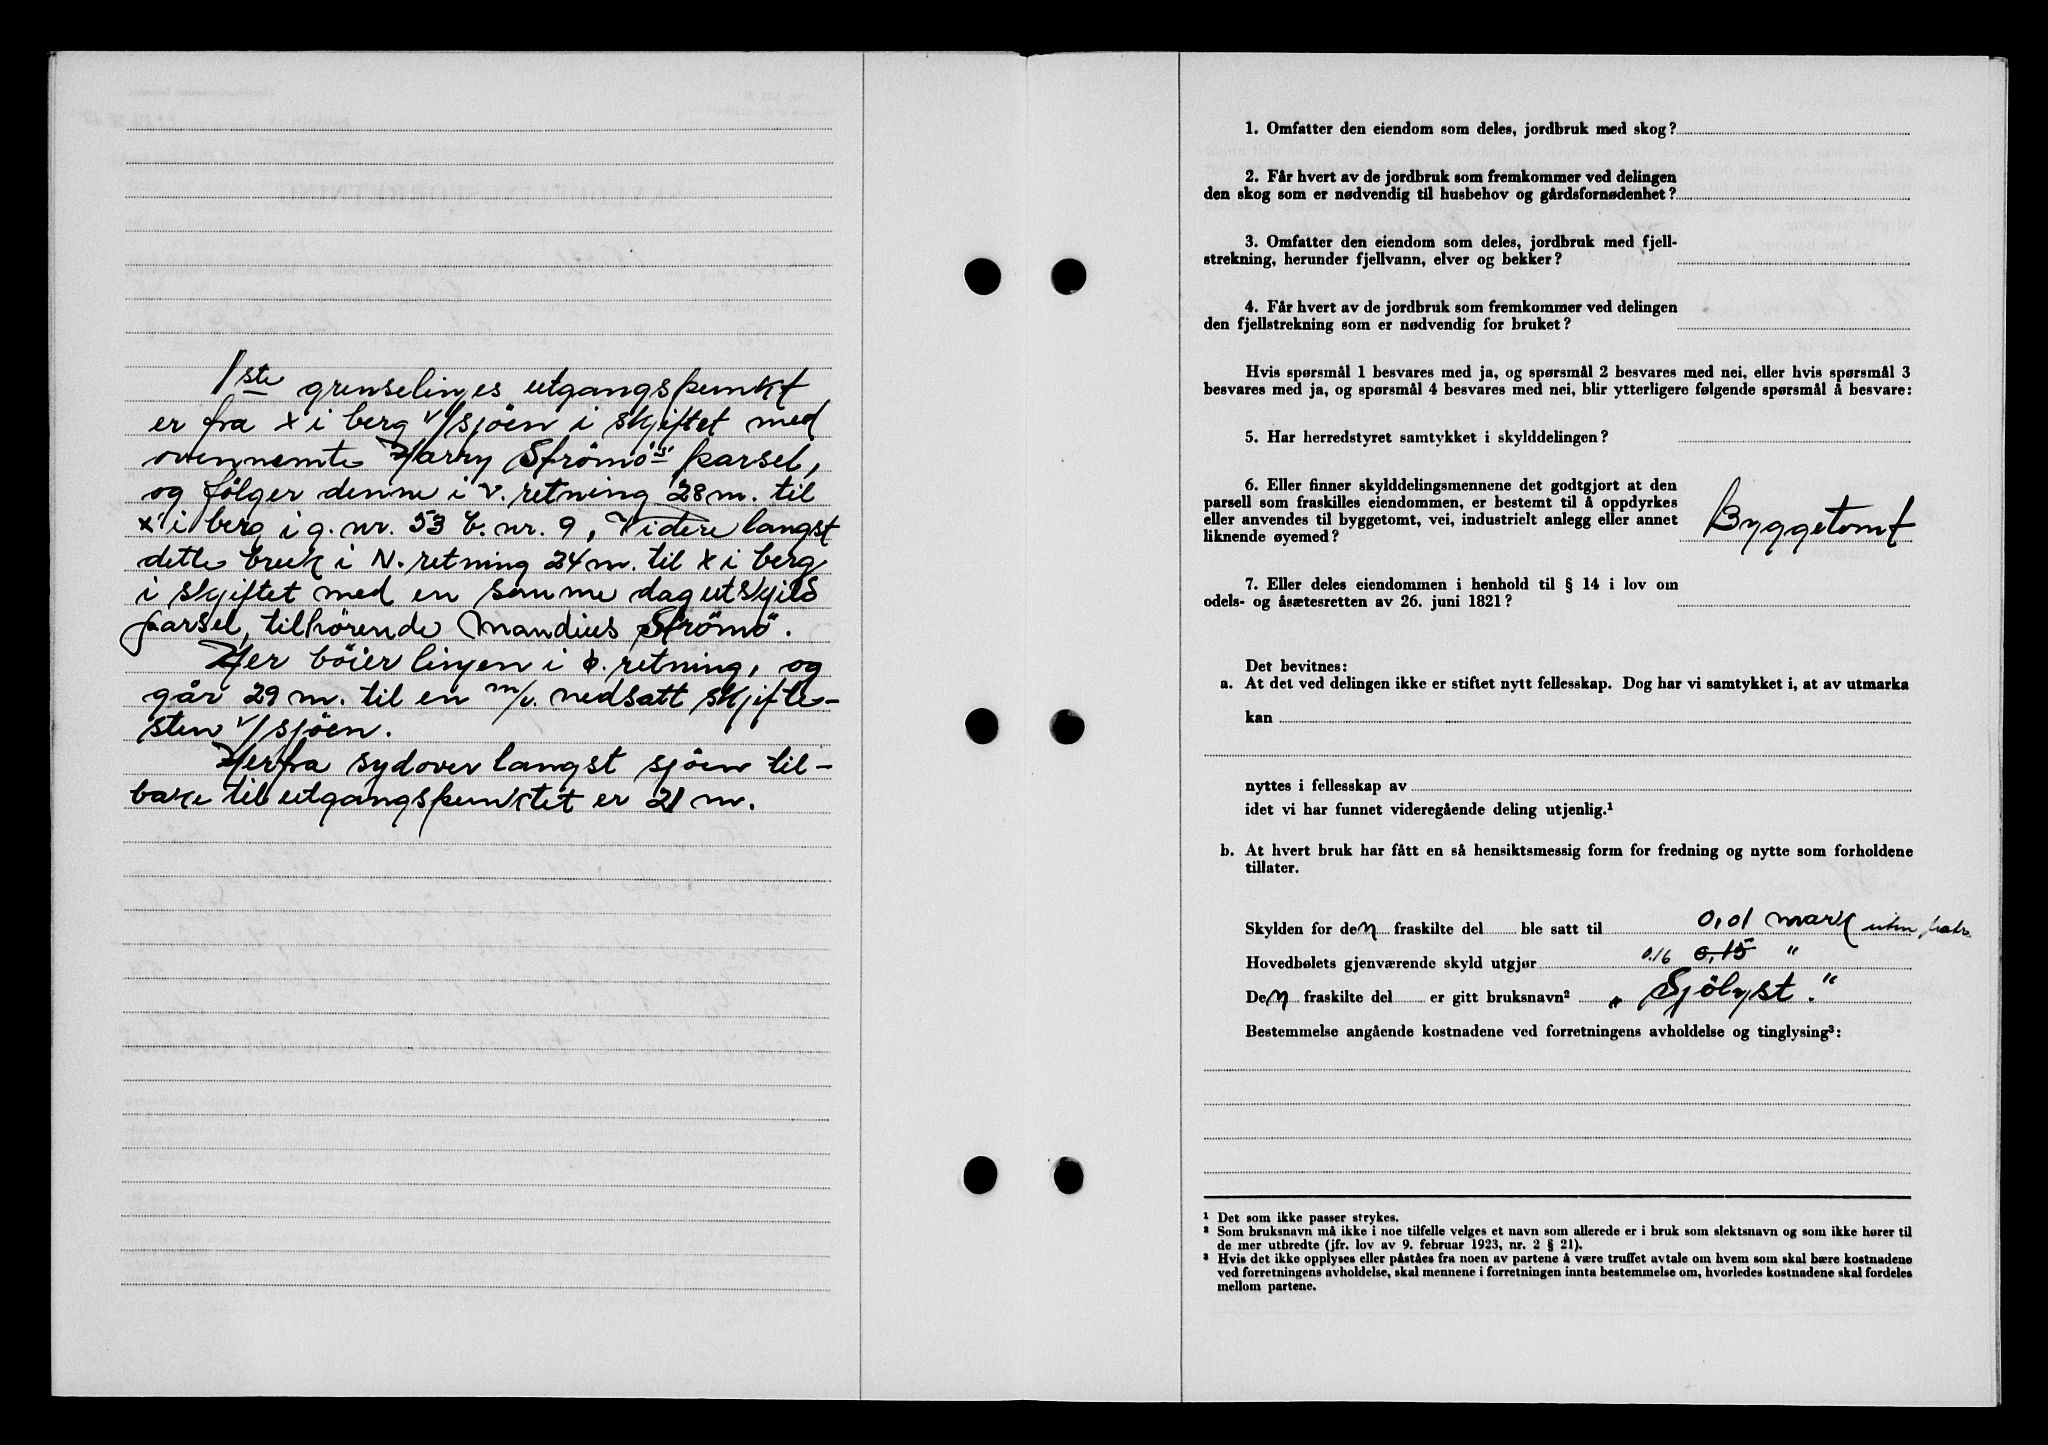 1ste grenselinjes utgangspunkt
er fra x i berg v/sjöen i skjiftet med
ovennemte Harry Strömö's parsel,
og fölger denne i v. retning 28 m. til
x i berg i g. nr. 53 b. nr. 9, Videre langst
dette bruk i N. retning 24 m. til x i berg
i skjiftet med en samme dag utskjild
parsel, tilhörende Mandius Strömö.
Her böier linjen i ö. retning, og
går 29 m. til en m/v. nedsatt skjifte-
sten v/sjöen.
Herfra sydover langst sjöen til-
bake til utgangspunktet er 21 m.
1. Omfatter den eiendom som deles, jordbruk med skog?
2. Får hvert av de jordbruk som fremkommer ved delingen
den skog som er nødvendig til husbehov og gårdsfornødenhet?
3. Omfatter den eiendom som deles, jordbruk med fjell-
strekning, herunder fjellvann, elver og bekker?
4. Får hvert av de jordbruk som fremkommer ved delingen
den fjellstrekning som er nødvendig for bruket?
Hvis spørsmål 1 besvares med ja, og spørsmål 2 besvares med nei, eller hvis spørsmål 3
besvares med ja, og spørsmål 4 besvares med nei, blir ytterligere følgende spørsmål å besvare:
5. Har herredstyret samtykket i skylddelingen?
6. Eller finner skylddelingsmennene det godtgjort at den
parsell som fraskilles eiendommen, er bestemt til å oppdyrkes
eller anvendes til byggetomt, vei, industrielt anlegg eller annet
liknende øyemed? Byggetomt
7. Eller deles eiendommen i henhold til § 14 i lov om
odels- og åsætesretten av 26. juni 1821?
Det bevitnes:
a. At det ved delingen ikke er stiftet nytt fellesskap. Dog har vi samtykket i, at av utmarka
kan
nyttes i fellesskap av
idet vi har funnet videregående deling utjenlig.¹
b. At hvert bruk har fått en så hensiktsmessig form for fredning og nytte som forholdene
tillater.
Skylden for den fraskilte del ble satt til 0,01 mark uten
Hovedbølets gjenværende skyld utgjør 0.16 0,15 "
Den fraskilte del er gitt bruksnavn² „Sjölyst."
Bestemmelse angående kostnadene ved forretningens avholdelse og tinglysing³:
¹ Det som ikke passer strykes.
² Som bruksnavn må ikke i noe tilfelle velges et navn som allerede er i bruk som slektsnavn og som ikke hører til
de mer utbredte (jfr. lov av 9. februar 1923, nr. 2 § 21).
³ Hvis det ikke opplyses eller påståes fra noen av partene å være truffet avtale om hvem som skal bære kostnadene
ved forretningens avholdelse, skal mennene i forretningen innta bestemmelse om, hvorledes kostnadene skal fordeles
mellom partene.